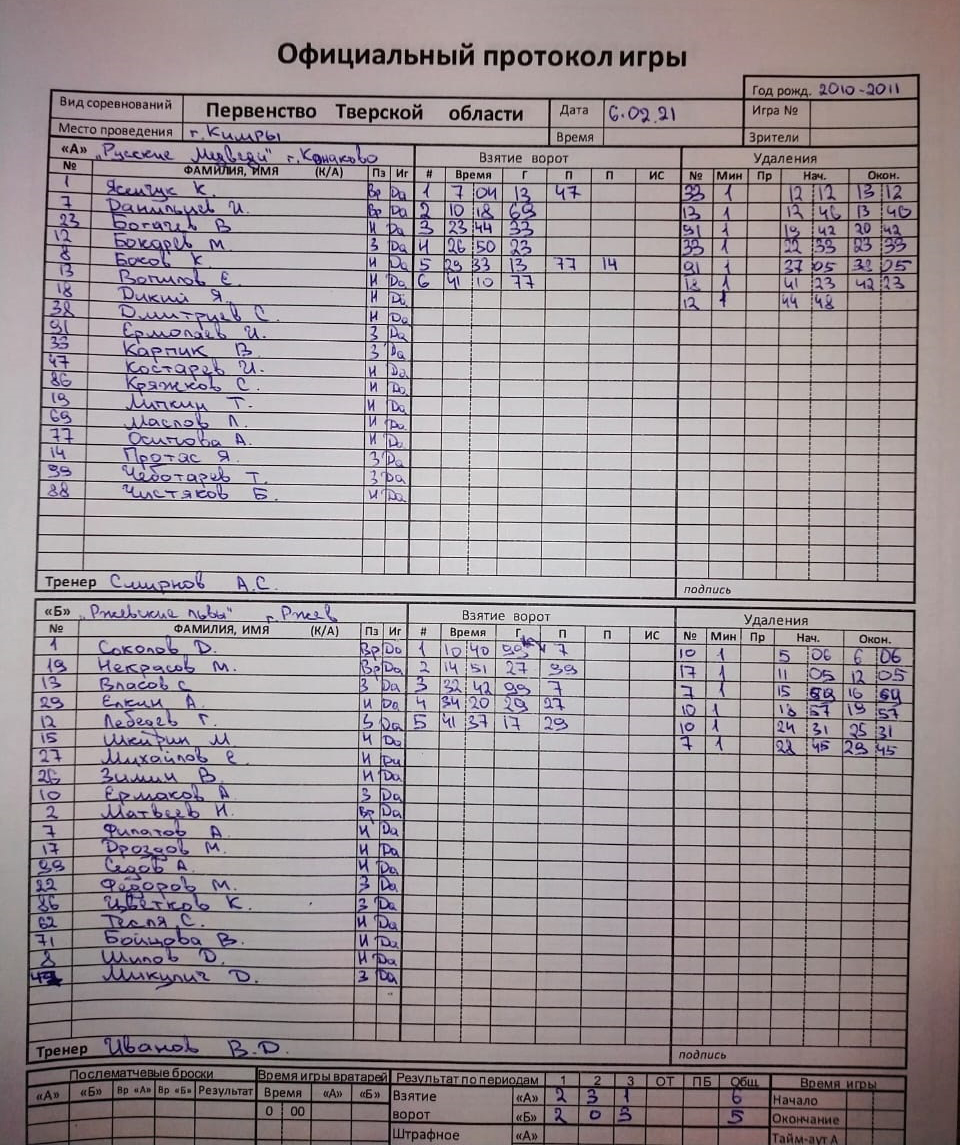 Официальный протокол игры
Год рожд. 2010-2011
Вид соревнований Первенство Тверской области Дата 6.02.21 Игра №
Место проведения г.Кимры Время Зрители
«А» „Русские Медведи" г.Конаково Взятие ворот Удаления
№ ФАМИЛИЯ, ИМЯ (К/А) Пз Иг # Время Г П П ИС № Мин Пр Нач. Окон.
1 Ясенчук К. Вр Да 1 7 04 13 47 33 1 12 12 13 12
7 Данильцев И. Вр Да 2 10 18 69 13 1 12 46 13 46
23 Богачев В Н Да 3 23 44 33 91 1 19 42 20 42
12 Бокарев М. З Да 4 26 50 23 33 1 22 33 23 33
8 Боков К. Н Да 5 29 33 13 77 14 91 1 37 05 38 05
13 Вопилов Е. Н Да 6 41 10 77 18 1 41 23 42 23
18 Дикий Я. Н Да 12 1 44 48
38 Дмитриев С. Н Да
91 Ермолаев И. З Да
33 Карпик В. З Да
47 Костарев И. Н Да
86 Кряжков С. Н Да
19 Липкин Т. Н Да
69 Маслов Л. Н Да
77 Осипова А. Н Да
14 Протас Я. З Да
99 Чеботарев Т. З Да
88 Чистяков Б. Н Да
Тренер Смирнов А.С. подпись
«Б» „Ржевские львы" г.Ржев Взятие ворот Удаления
№ ФАМИЛИЯ, ИМЯ (К/А) Пз Иг # Время Г П П ИС № Мин Пр Нач. Окон.
1 Соколов D. Вр Да 1 10 40 99 7 10 1 5 06 6 06
19 Некрасов М. Вр Да 2 14 51 27 99 17 1 11 05 12 05
13 Власов С З Да 3 32 42 99 7 7 1 15 59 16 59
29 Елкин А. Н Да 4 34 20 29 27 10 1 18 57 19 57
12 Лебедев Г. З Да 5 41 37 17 29 10 1 24 31 25 31
15 Шкирин М Н Да 7 1 28 45 29 45
27 Михайлов Е. Н Да
26 Зимин В. Н Да
10 Ермаков А З Да
2 Матвеев Н. Вр Да
7 Филатов А. Н Да
17 Дроздов М. Н Да
99 Седов А. Н Да
22 Федоров М. З Да
86 Цветков К. З Да
62 Тесля С. Н Да
71 Бойцова В. Н Да
8 Шилов D. Н Да
Микулич D. З Да
Тренер Иванов В.D. подпись
Послематчевые броски Время игры вратарей Результат по периодам 1 2 3 ОТ ПБ Общ. Время игры
«А» «Б» Вр «А» Вр «Б» Результат Время «А» «Б» Взятие «А» 2 3 1 6 Начало
0 00 ворот «Б» 2 0 3 5 Окончание
Штрафное «А» Тайм-аут А